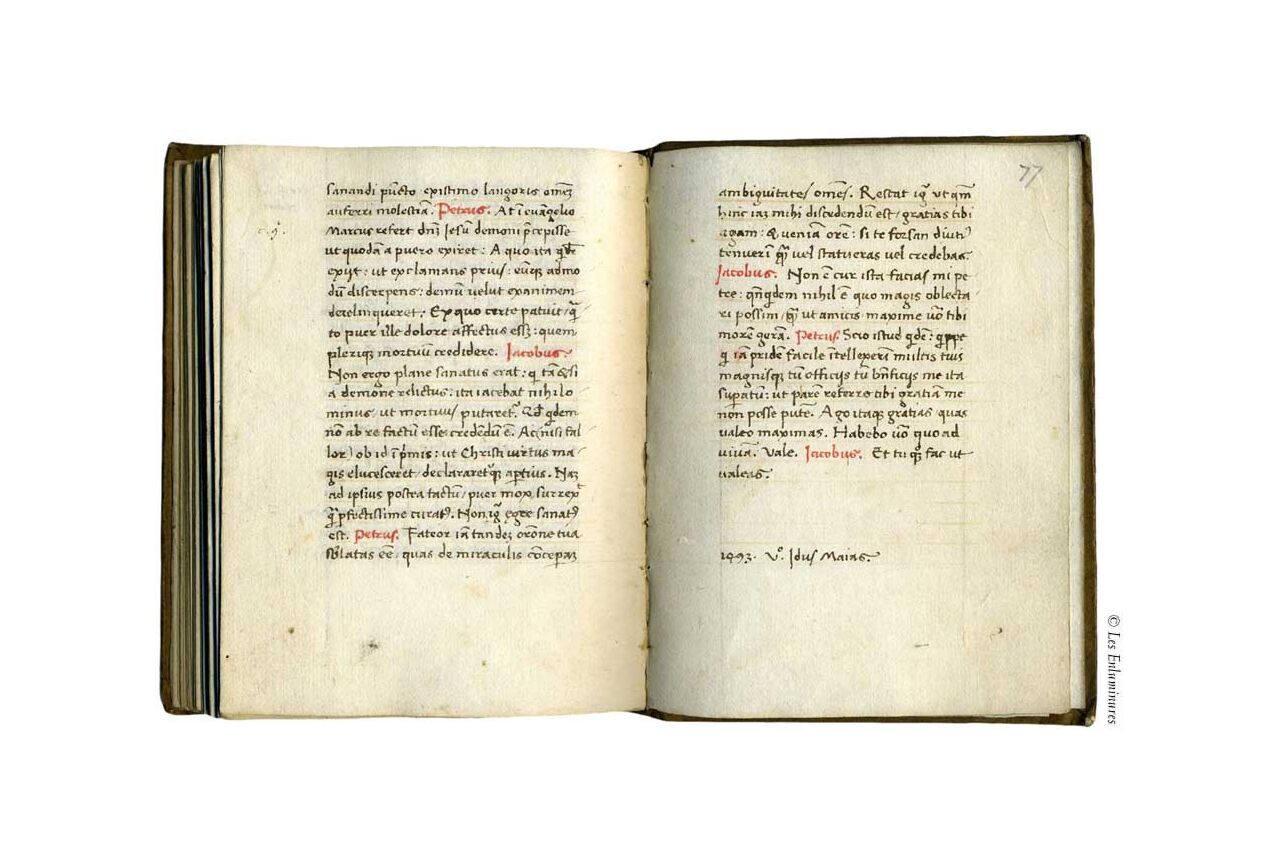 sanandi pūcto existimo langoris omēz
auferri molestiā. Petrus. At ī evāngelio
c. 9.
Marcus refert dnm̄ Iesū demoni p̄cepisse
ut quodā a puero exiret: A quo ita
exiit: ut exclamans prius: eūqz admo
dū discerpens: demū velut exanimem
derelinqueret: Ex quo certe patuit/ quā
to puer ille dolore affectus essz: quem
pleriqz mortuū credidere. Jacobus.
Non ergo plane sanatus erat: qi tā&si
a demone relictus: ita iacebat nihilo
minus ut mortuus putaret. Qd qdem
nō ab re factū esse credēdū ē. Ac nisi fal
lor) ob id īpmis: ut Christi virtus ma
gis elucesceret/ declararetqz aptius. Naz
ad ipsius postea tactū/ puer mox surrex
pfectissime curat9. Non igr̄ egre sanat9
est. Petrus. Fateor iā tandez orōne tua
sblatas eē/ quas de miraculis cōceperaz
77
ambiguitates omēs. Restat igr̄ ut qm̄
hinc iaz mihi discedendū est/ gratias tibi
agam: & veniā orē: si te forsan diuti9
tenuerī quā vel statueras vel credebas.
Jacobus. Non ē cur ista facias mi pe
tre: qn̄qdem nihil ē quo magis oblecta
ri possim/ quā ut amicis maxime vō tibi
morē gerā. Petrus. Scio istud qdē: qippe
qi iā pridē facile ītellexerī multis tuis
magnisqz tū officijs tū bn̄ficijs me ita
supatū: ut parē referre tibi gratiā me
nōn posse putē. Ago itaqz grātias quas
valeo maximas. Habebo vō quoad
vivā. Vale. Jacobus. Et tu qz fac ut
valeas.
1493. V°. Idus Maias.
© Les Enluminures